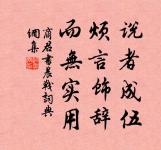 说者成伍
烦言饰辞
而无实用
商君书农战词典
网集